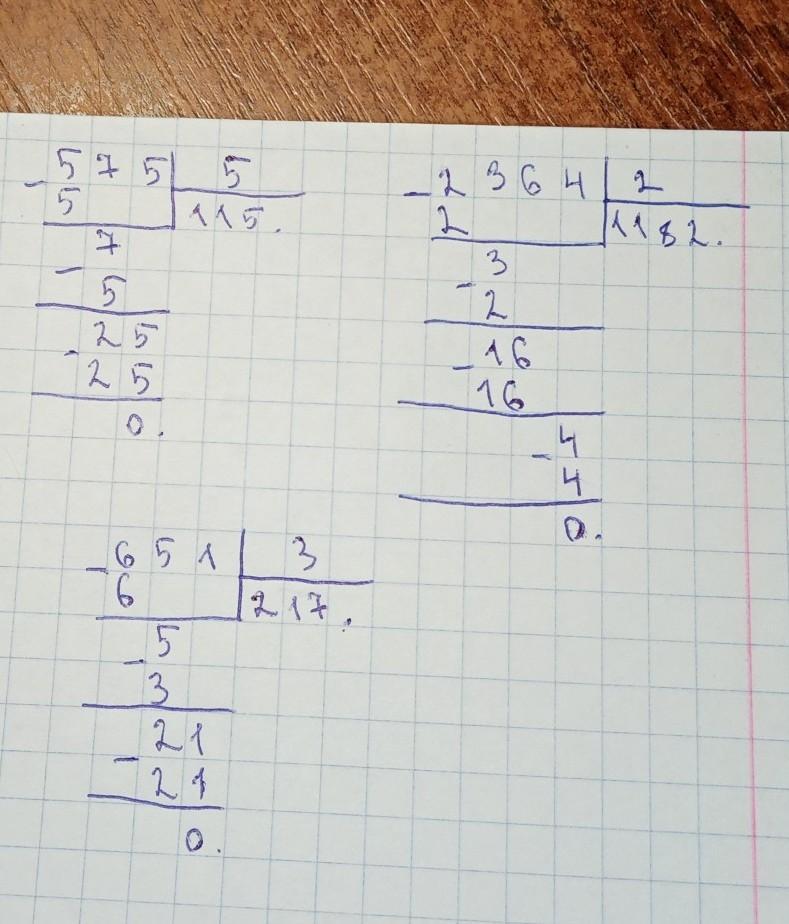 - 575 | 5
5 | 115.
7
- 5
- 25
25
0.
- 2364 | 2
2 | 1182.
- 3
2
- 16
16
- 4
4
0.
- 651 | 3
6 | 217.
- 5
3
- 21
21
0.